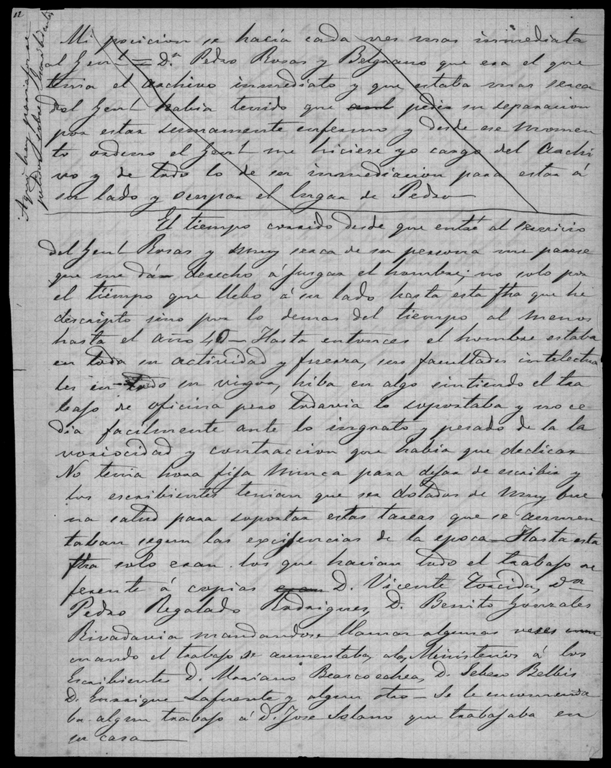 12
Mi posicion se hacia cada ves mas inmediata
al Genl = Dn Pedro Rosas y Belgrano que era el que
tenia el archivo inmediato y que estaba mas serca
del Genl habia tenido que pedir su separacion
por estar sumamente enfermo y desde ese momen
to ordeno el Genl me hiciese yo cargo del Archi
vo y de todo lo de su inmediacion para estar á
su lado y ocupar el lugar de Pedro
El tiempo corrido desde que entré al servicio
del Genl Rosas y muy serca de su persona me parese
que me dá derecho á jusgar el hombre; no solo por
el tiempo que llebo á su lado hasta esta fha que hé
descripto sino por lo demas del tiempo al menos
hasta el año 40 — Hasta entonces el hombre estaba
en toda su actividad y fuerza, sus facultades intelectua
les en todo su vigor, hiba en algo sintiendo el tra
bajo de oficina pero todavia lo soportaba y no ce
dia facilmente ante lo ingrato y pesado de la la
voriocidad y contraccion que habia que dedicar
No tenia hora fija nunca para dejar de escribir y
los escribientes tenian que ser dotados de muy bue
na salud para soportar estas tareas que se aumen
taban segun las exijencias de la epoca — Hasta esta
fha solo eran los que hacian todo el trabajo re
ferente á copias D. Vicente Torcida, Dn
Pedro Regalado Rodriguez, D. Benito Gonzales
Rivadavia mandandose llamar algunas veses
cuando el trabajo se aumentaba, a los Ministerios á los
Escribientes D. Mariano Beascoechea, D. Sebero Belbis
D. Enrrique Lafuente y algun otro — Se le encomenda
ba algun trabajo á D. Jose Solano que trabajaba en
su casa —